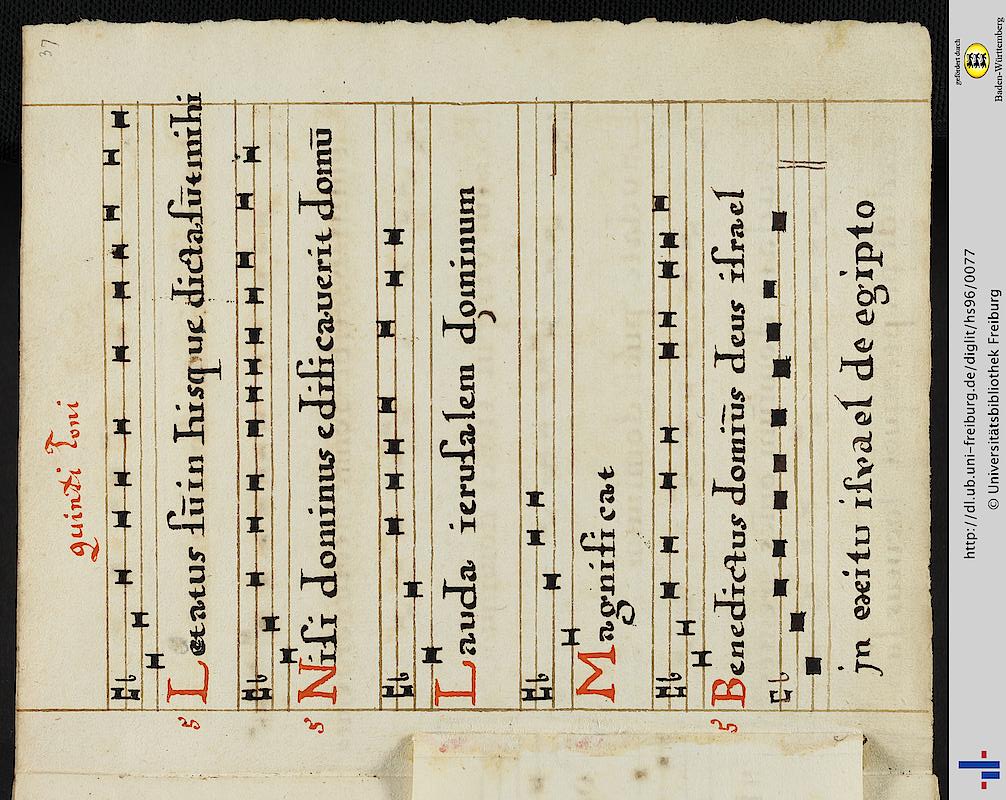 37
quinti Toni
Letatus sūin hisque dicta sūt mihi
5
Nisi dominus edificaverit domū
5
Lauda ierusalem dominum
Magnificat
Benedictus domin̄us deus israel
5
jn exitu israel de egipto
gefördert durch
Baden-Württemberg
http://dl.ub.uni-freiburg.de/diglit/hs96/0077
© Universitätsbibliothek Freiburg